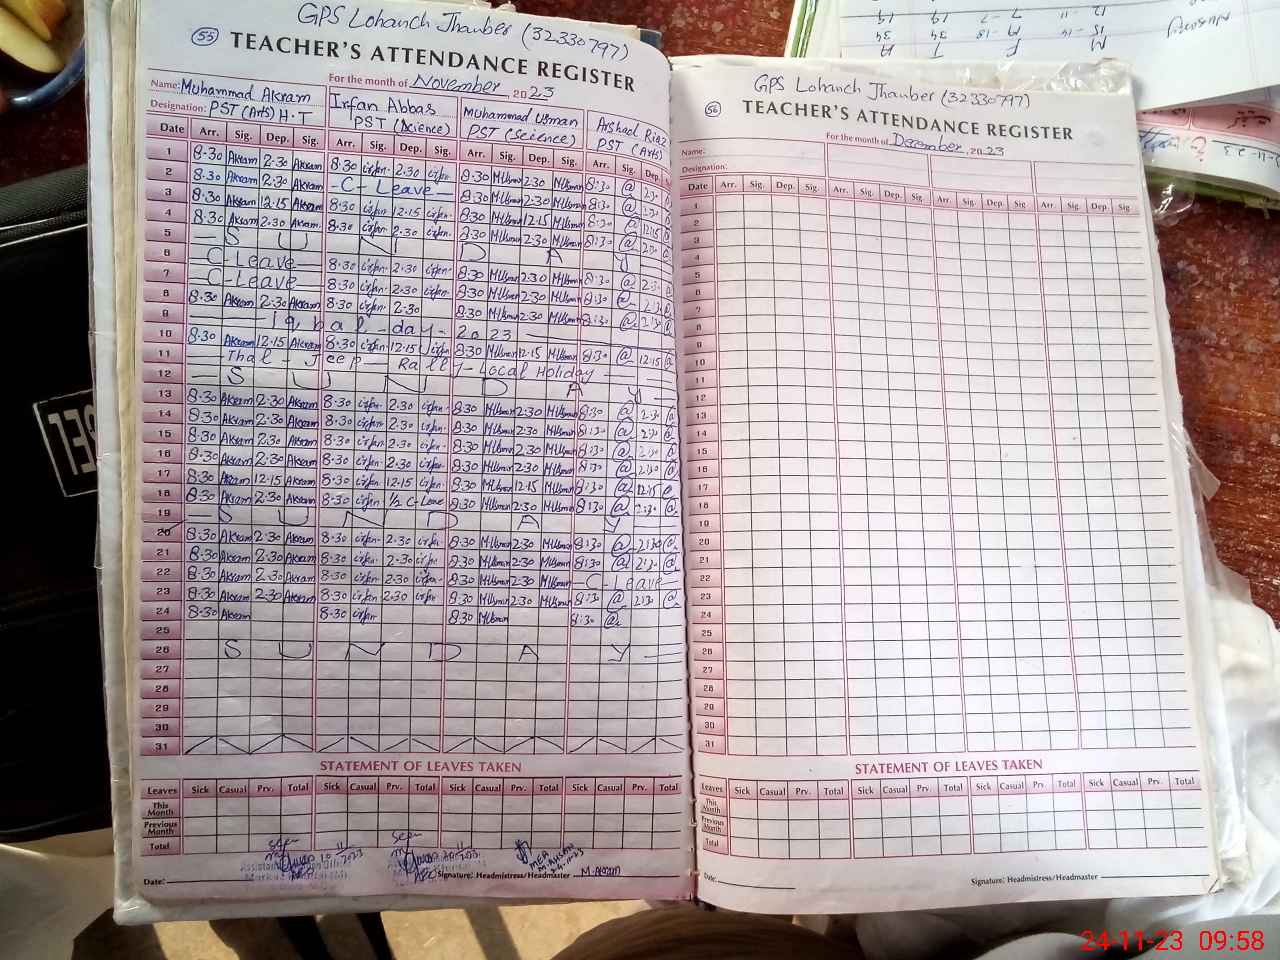 GPS Lohanch Jhauber (32330797)
55 TEACHER'S ATTENDANCE REGISTER
For the month of November, 2023
Name: Muhammad Akram Irfan Abbas Muhammad Usman Arshad Riaz
Designation: PST (Arts) H.T PST (Science) PST (Science) PST (Arts)
Date Arr. Sig. Dep. Sig. Arr. Sig. Dep. Sig. Arr. Sig. Dep. Sig. Arr. Sig. Dep.
1 8.30 Akram 2.30 Akram 8.30 irfan 2.30 irfan 8.30 MUsman 2.30 MUsman 8:30 @ 2:30
2 8.30 Akram 2.30 Akram - C - Leave - 8.30 MUsman 2.30 MUsman 8:30 @ 2:30
3 8.30 Akram 12.15 Akram 8.30 irfan 12.15 irfan 8.30 MUsman 12.15 MUsman 8:30 @ 12:15
4 8.30 Akram 2.30 Akram 8.30 irfan 2.30 irfan 8.30 MUsman 2.30 MUsman 8:30 @ 2:30
5 S U N D A Y
6 C-Leave 8.30 irfan 2.30 irfan 8.30 MUsman 2.30 MUsman 8:30 @ 2:30
7 C-Leave 8.30 irfan 2.30 irfan 8.30 MUsman 2.30 MUsman 8:30 @ 2:30
8 8.30 Akram 2.30 Akram 8.30 irfan 2.30 8.30 MUsman 2.30 MUsman 8:30 @ 2:30
9 iqbal - day - 2023
10 8.30 Akram 12.15 Akram 8.30 irfan 12.15 irfan 8.30 MUsman 12.15 MUsman 8:30 @ 12:15
11 Thal - Jeep - Rally - Local Holiday
12 S U N D A Y
13 8.30 Akram 2.30 Akram 8.30 irfan 2.30 irfan 8.30 MUsman 2.30 MUsman 8:30 @ 2:30 @
14 8.30 Akram 2.30 Akram 8.30 irfan 2.30 irfan 8.30 MUsman 2.30 MUsman 8:30 @ 2:30 @
15 8.30 Akram 2.30 Akram 8.30 irfan 2.30 irfan 8.30 MUsman 2.30 MUsman 8:30 @ 2:30 @
16 8.30 Akram 2.30 Akram 8.30 irfan 2.30 irfan 8.30 MUsman 2.30 MUsman 8:30 @ 2:30 @
17 8.30 Akram 12.15 Akram 8.30 irfan 12.15 irfan 8.30 MUsman 12.15 MUsman 8:30 @ 12:15 @
18 8.30 Akram 2.30 Akram 8.30 irfan 1/2 C-Leave 8.30 MUsman 2.30 MUsman 8:30 @ 2:30 @
19 S U N D A Y
20 8.30 Akram 2.30 Akram 8.30 irfan 2.30 irfan 8.30 MUsman 2.30 MUsman 8:30 @ 2:30 @
21 8.30 Akram 2.30 Akram 8.30 irfan 2.30 irfan 8.30 MUsman 2.30 MUsman 8:30 @ 2:30 @
22 8.30 Akram 2.30 Akram 8.30 irfan 2.30 irfan 8.30 MUsman 2.30 MUsman - C - Leave
23 8.30 Akram 2.30 Akram 8.30 irfan 2.30 irfan 8.30 MUsman 2.30 MUsman 8:30 @ 2:30 @
24 8.30 Akram 8.30 irfan 8.30 MUsman 8:30 @
25
26 S U N D A Y
27
28
29
30
31
STATEMENT OF LEAVES TAKEN
Leaves Sick Casual Prv. Total Sick Casual Prv. Total Sick Casual Prv. Total Sick Casual Prv. Total
This Month
Previous Month
Total
Date: Signature: Headmistress/Headmaster M. Akram
GPS Lohanch Jhauber (32330797)
56 TEACHER'S ATTENDANCE REGISTER
For the month of December, 2023
Name:
Designation:
Date Arr. Sig. Dep. Sig. Arr. Sig. Dep. Sig. Arr. Sig. Dep. Sig. Arr. Sig. Dep. Sig
1
2
3
4
5
6
7
8
9
10
11
12
13
14
15
16
17
18
19
20
21
22
23
24
25
26
27
28
29
30
31
STATEMENT OF LEAVES TAKEN
Leaves Sick Casual Prv. Total Sick Casual Prv. Total Sick Casual Prv. Total Sick Casual Prv. Total
This Month
Previous Month
Total
Date: Signature: Headmistress/Headmaster
24-11-23 09:58